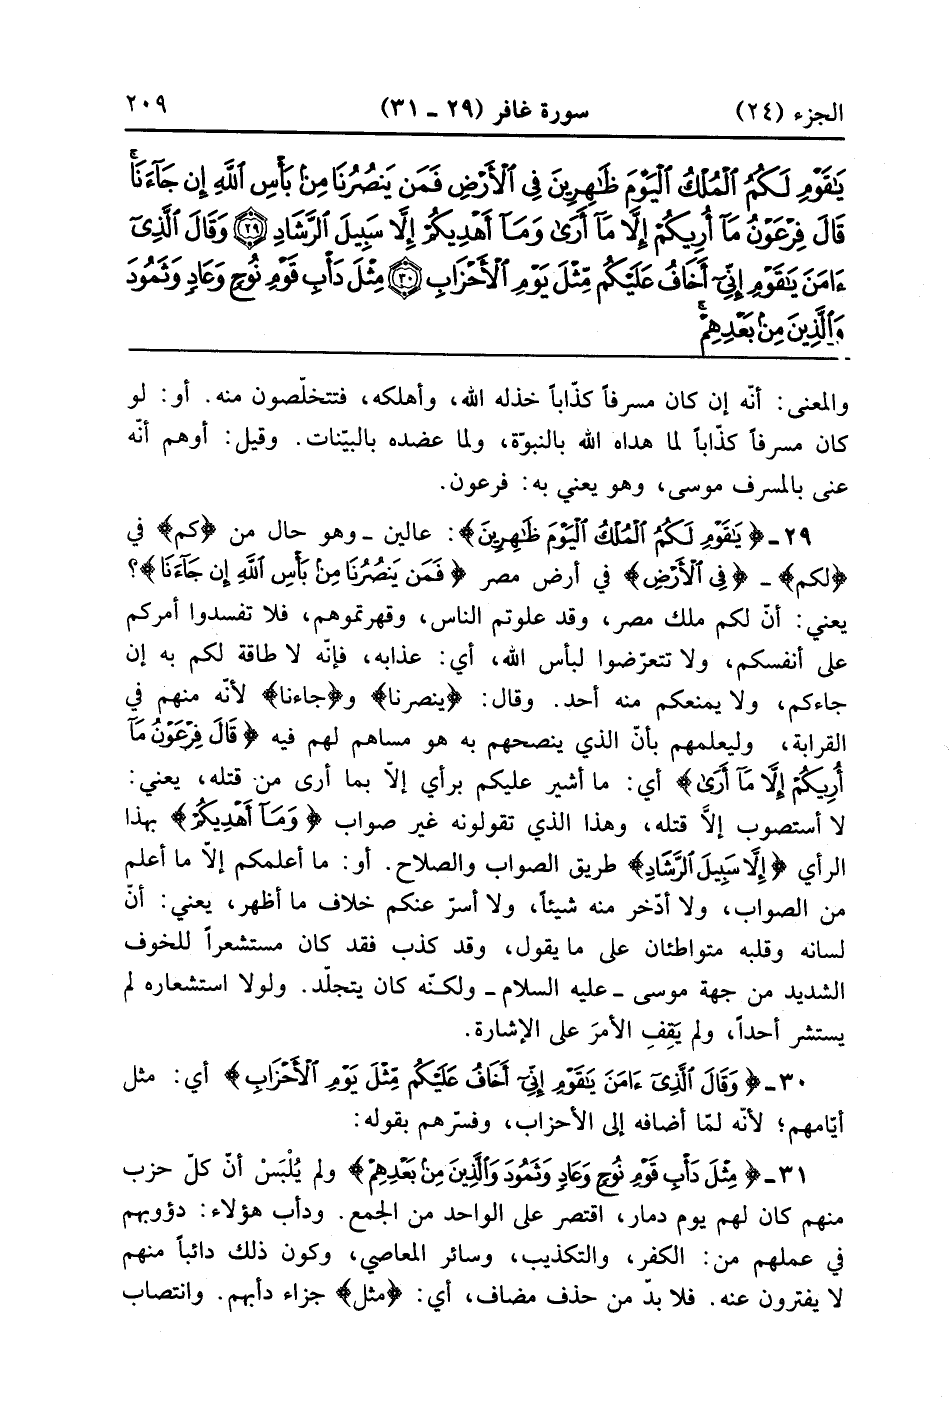 الجزء (٢٤) سورة غافر (٢٩ ـ ٣١) ٢٠٩
يَٰقَوْمِ لَكُمُ ٱلْمُلْكُ ٱلْيَوْمَ ظَٰهِرِينَ فِى ٱلْأَرْضِ فَمَن يَنصُرُنَا مِنۢ بَأْسِ ٱللَّهِ إِن جَآءَنَا ۚ
قَالَ فِرْعَوْنُ مَآ أُرِيكُمْ إِلَّا مَآ أَرَىٰ وَمَآ أَهْدِيكُمْ إِلَّا سَبِيلَ ٱلرَّشَادِ ۝٢٩ وَقَالَ ٱلَّذِىٓ
ءَامَنَ يَٰقَوْمِ إِنِّىٓ أَخَافُ عَلَيْكُم مِّثْلَ يَوْمِ ٱلْأَحْزَابِ ۝٣٠ مِثْلَ دَأْبِ قَوْمِ نُوحٍ وَعَادٍ وَثَمُودَ
وَٱلَّذِينَ مِنۢ بَعْدِهِمْ ۚ
والمعنى: أنّه إن كان مسرفاً كذّاباً خذله الله، وأهلكه، فتتخلّصون منه. أو: لو
كان مسرفاً كذّاباً لما هداه الله بالنبوّة، ولما عضده بالبيّنات. وقيل: أوهم أنّه
عنى بالمسرف موسى، وهو يعني به: فرعون.
٢٩ـ ﴿يَٰقَوْمِ لَكُمُ ٱلْمُلْكُ ٱلْيَوْمَ ظَٰهِرِينَ﴾: عالين ـ وهو حال من ﴿كم﴾ في
﴿لكم﴾ ـ ﴿فِى ٱلْأَرْضِ﴾ في أرض مصر ﴿فَمَن يَنصُرُنَا مِنۢ بَأْسِ ٱللَّهِ إِن جَآءَنَا﴾؟
يعني: أنّ لكم ملك مصر، وقد علوتم الناس، وقهرتموهم، فلا تفسدوا أمركم
على أنفسكم، ولا تتعرّضوا لبأس الله، أي: عذابه، فإنّه لا طاقة لكم به إن
جاءكم، ولا يمنعكم منه أحد. وقال: ﴿ينصرنا﴾ و﴿جاءنا﴾ لأنّه منهم في
القرابة، وليعلمهم بأنّ الذي ينصحهم به هو مساهم لهم فيه ﴿قَالَ فِرْعَوْنُ مَآ
أُرِيكُمْ إِلَّا مَآ أَرَىٰ﴾ أي: ما أشير عليكم برأي إلاّ بما أرى من قتله، يعني:
لا أستصوب إلاَّ قتله، وهذا الذي تقولونه غير صواب ﴿وَمَآ أَهْدِيكُمْ﴾ بهذا
الرأي ﴿إِلَّا سَبِيلَ ٱلرَّشَادِ﴾ طريق الصواب والصلاح. أو: ما أعلمكم إلاّ ما أعلم
من الصواب، ولا أدّخر منه شيئاً، ولا أسرّ عنكم خلاف ما أظهر، يعني: أنّ
لسانه وقلبه متواطئان على ما يقول، وقد كذب فقد كان مستشعراً للخوف
الشديد من جهة موسى ـ عليه السلام ـ ولكنّه كان يتجلّد. ولولا استشعاره لم
يستشر أحداً، ولم يَقِفِ الأمرَ على الإشارة.
٣٠ـ ﴿وَقَالَ ٱلَّذِىٓ ءَامَنَ يَٰقَوْمِ إِنِّىٓ أَخَافُ عَلَيْكُم مِّثْلَ يَوْمِ ٱلْأَحْزَابِ﴾ أي: مثل
أيّامهم؛ لأنّه لمّا أضافه إلى الأحزاب، وفسّرهم بقوله:
٣١ـ ﴿مِثْلَ دَأْبِ قَوْمِ نُوحٍ وَعَادٍ وَثَمُودَ وَٱلَّذِينَ مِنۢ بَعْدِهِمْ﴾ ولم يُلْبَسْ أنّ كلّ حزب
منهم كان لهم يوم دمار، اقتصر على الواحد من الجمع. ودأب هؤلاء: دؤوبهم
في عملهم من: الكفر، والتكذيب، وسائر المعاصي، وكون ذلك دائباً منهم
لا يفترون عنه. فلا بدّ من حذف مضاف، أي: ﴿مثل﴾ جزاء دأبهم. وانتصاب